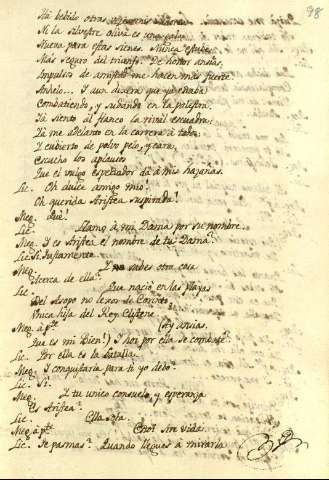 98
Há bebido otras
Ni la silvestre oliva es
Nueva para estas sienes. Nunca estube
Mas seguro del triunfo. De honor ansias,
Impulsos de amistad me hacen mas fuerte
Anhelo... Y aun dixera que ya estaba
Combatiendo, y sudando en la palestra.
Yá siento al flanco la rival esquadra:
Yá me adelanto en la carrera á todos:
Y cubierto de polvo pelo, y cara,
Escucho los aplausos
Que el vulgo espectador dá á mis hazañas.
Lic. Oh dulce amigo mio!
Oh querida Aristea suspirada!
Meg. Qué!
Lic. Llamo á mi Dama por su nombre.
Meg. Y es Aristea el nombre de tu Dama?
Lic. Si. Justamente.
Meg. Y sabes otra cosa
Acerca de ella?
Lic. Que nació en las playas
Del Asopo no lexos de Corinto
Unica hija del Rey Clistene
Meg. á pte. (Ay ansias.
Que es mi bien!) Y hoi por ella se combate?
Lic. Por ella es la batalla.
Meg. Y conquistarla para ti yo debo?
Lic. Si.
Meg. Y tu unico consuelo, y esperanza
Es Aristea?
Lic. Ella sola.
Meg. á pte.
Lic. Te pasmas? Quando llegues á mirarla